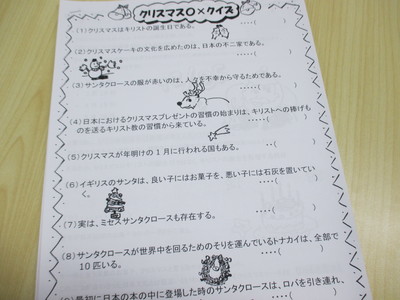 クリスマス○×クイズ
(1)クリスマスはキリストの誕生日である。 ····( )
(2)クリスマスケーキの文化を広めたのは、日本の不二家である。
····( )
(3)サンタクロースの服が赤いのは、人々を不幸から守るためである。
····( )
(4)日本におけるクリスマスプレゼントの習慣の始まりは、キリストへの捧げも
のを送るキリスト教の習慣から来ている。 ····( )
(5)クリスマスが年明けの1月に行われる国もある。 ····( )
(6)イギリスのサンタは、良い子にはお菓子を、悪い子には石灰を置いてい
く。 ····( )
(7)実は、ミセスサンタクロースも存在する。 ····( )
(8)サンタクロースが世界中を回るためのそりを運んでいるトナカイは、全部で
10匹いる。 ····( )
最初に日本の本の中に登場した時のサンタクロースは、ロバを引き連れ、